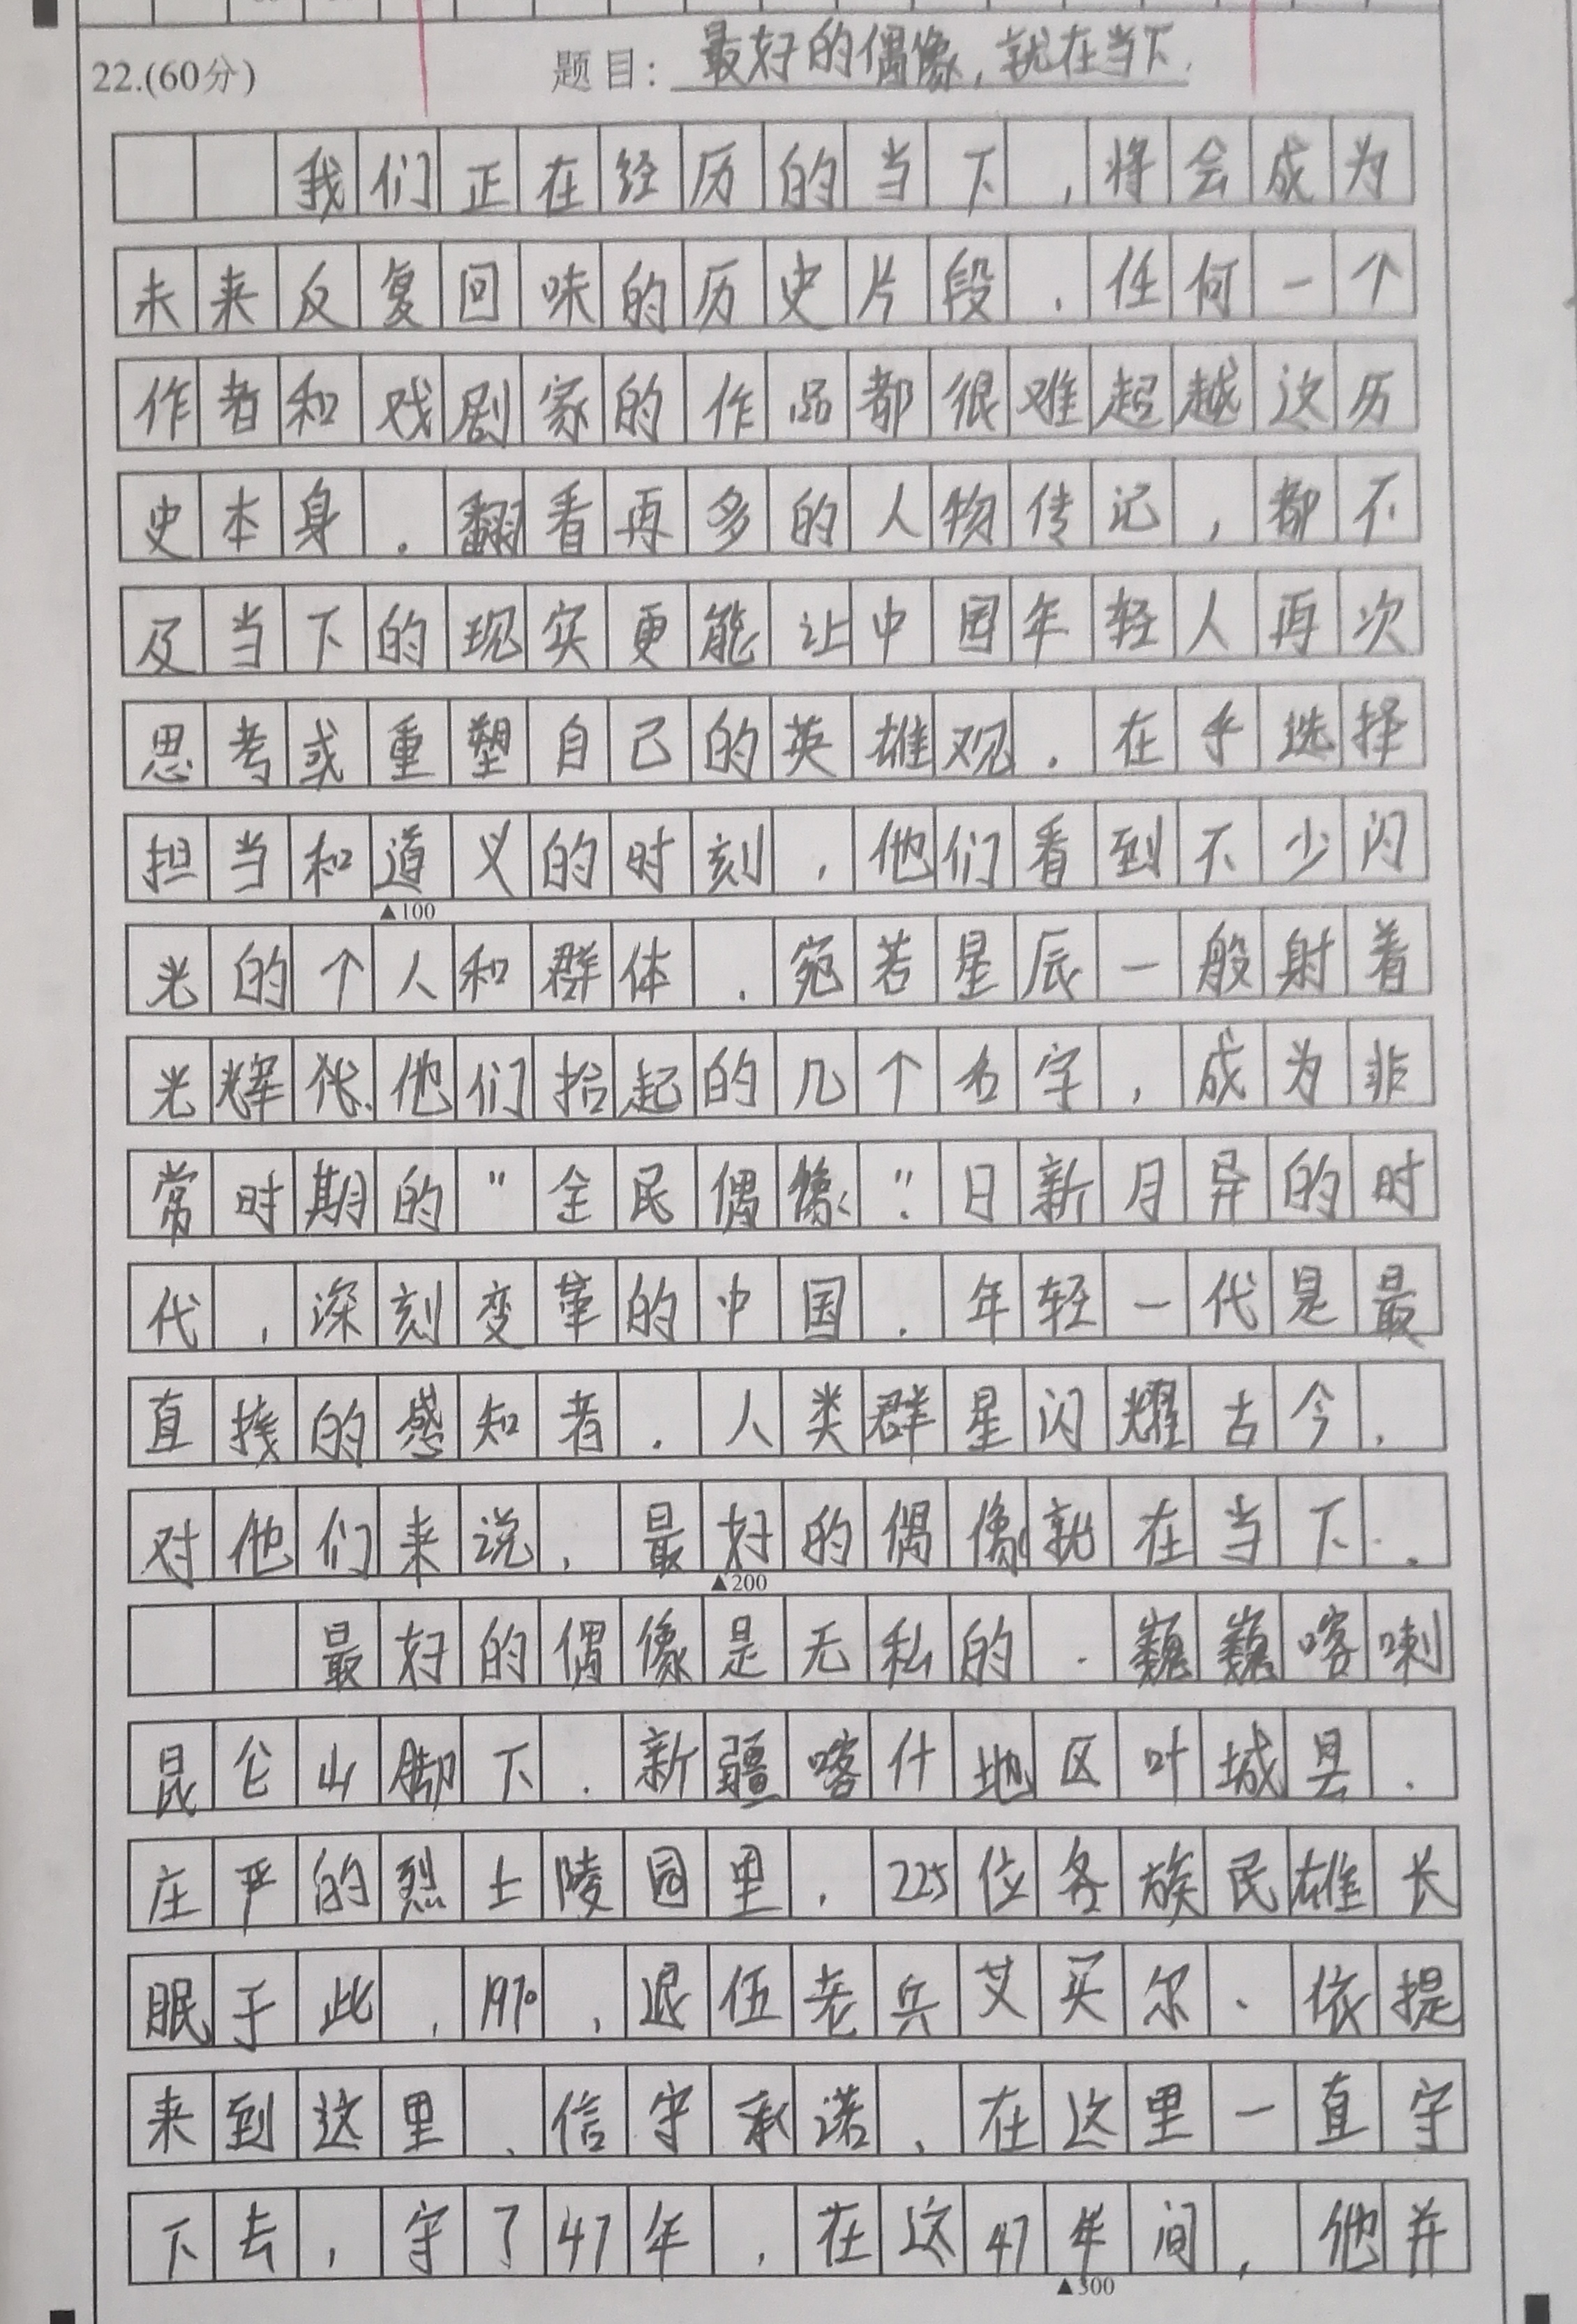 22.(60分) 题目: 最好的偶像,就在当下.
我们正在经历的当下,将会成为
未来反复回味的历史片段.任何一个
作者和戏剧家的作品都很难超越这历
史本身.翻看再多的人物传记,都不
及当下的现实更能让中国年轻人再次
思考或重塑自己的英雄观.在乎选择
担当和道义的时刻,他们看到不少闪
▲100
光的个人和群体.宛若星辰一般射着
光辉.他们抬起的几个名字,成为非
常时期的"全民偶像".日新月异的时
代,深刻变革的中国.年轻一代是最
直接的感知者.人类群星闪耀古今.
对他们来说,最好的偶像就在当下.
▲200
最好的偶像是无私的.巍巍喀喇
昆仑山脚下.新疆喀什地区叶城县.
庄严的烈士陵园里.225位各族民雄长
眠于此,1970,退伍老兵艾买尔、依提
来到这里、信守承诺,在这里一直守
下去,守了47年,在这47年间,他并
▲300